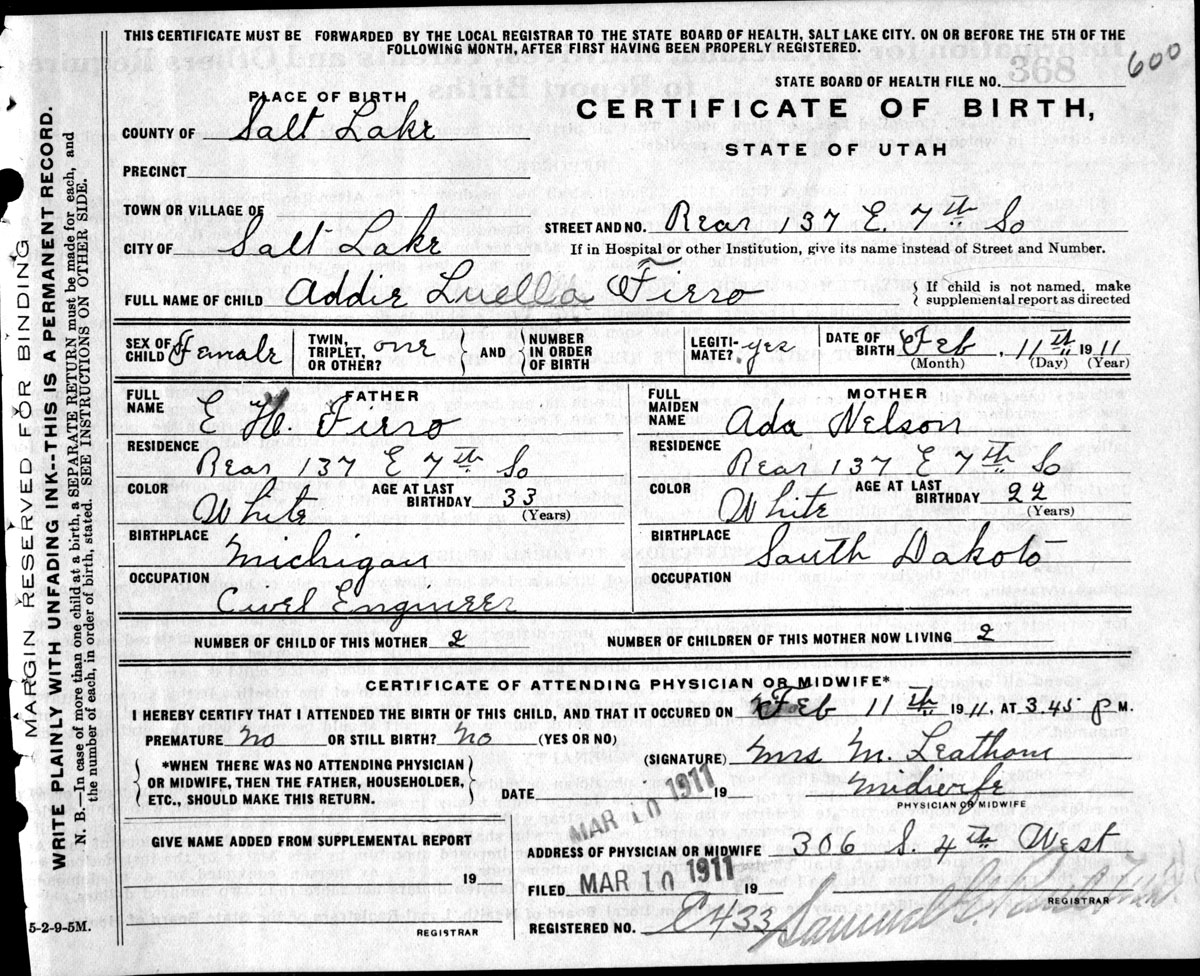 THIS CERTIFICATE MUST BE FORWARDED BY THE LOCAL REGISTRAR TO THE STATE BOARD OF HEALTH, SALT LAKE CITY. ON OR BEFORE THE 5TH OF THE
FOLLOWING MONTH, AFTER FIRST HAVING BEEN PROPERLY REGISTERED.
600
STATE BOARD OF HEALTH FILE NO. 368
PLACE OF BIRTH
CERTIFICATE OF BIRTH,
COUNTY OF Salt Lake
STATE OF UTAH
PRECINCT
TOWN OR VILLAGE OF
STREET AND NO. Rear 137 E. 7th So
CITY OF Salt Lake
If in Hospital or other Institution, give its name instead of Street and Number.
FULL NAME OF CHILD Addie Luella Firro
{ If child is not named, make
supplemental report as directed
SEX OF CHILD Female
TWIN, TRIPLET, OR OTHER? one
{ AND } NUMBER IN ORDER OF BIRTH
LEGITIMATE? yes
DATE OF BIRTH Feb, 11th 1911
(Month) (Day) (Year)
FATHER
FULL NAME E H. Firro
RESIDENCE
Rear 137 E 7th So
COLOR White AGE AT LAST BIRTHDAY 33
(Years)
BIRTHPLACE Michigan
OCCUPATION
Civel Engineer
MOTHER
FULL MAIDEN NAME Ada Nelson
RESIDENCE
Rear 137 E 7th So
COLOR White AGE AT LAST BIRTHDAY 22
(Years)
BIRTHPLACE South Dakoto
OCCUPATION
NUMBER OF CHILD OF THIS MOTHER 2 NUMBER OF CHILDREN OF THIS MOTHER NOW LIVING 2
CERTIFICATE OF ATTENDING PHYSICIAN OR MIDWIFE*
I HEREBY CERTIFY THAT I ATTENDED THE BIRTH OF THIS CHILD, AND THAT IT OCCURED ON Feb 11th 1911, AT 3.45 P M.
PREMATURE No OR STILL BIRTH? No (YES OR NO)
(SIGNATURE) Mrs M. Leatham
*WHEN THERE WAS NO ATTENDING PHYSICIAN
OR MIDWIFE, THEN THE FATHER, HOUSEHOLDER,
ETC., SHOULD MAKE THIS RETURN.
DATE MAR 10 1911 19
Midwife
PHYSICIAN OR MIDWIFE
GIVE NAME ADDED FROM SUPPLEMENTAL REPORT
19
REGISTRAR
ADDRESS OF PHYSICIAN OR MIDWIFE 306 S. 4th West
FILED MAR 10 1911 19
REGISTRAR
REGISTERED NO. C433
5-2-9-5M.
MARGIN RESERVED FOR BINDING
WRITE PLAINLY WITH UNFADING INK--THIS IS A PERMANENT RECORD.
N. B.—In case of more than one child at a birth, a SEPARATE RETURN must be made for each, and
the number of each, in order of birth, stated. SEE INSTRUCTIONS ON OTHER SIDE.